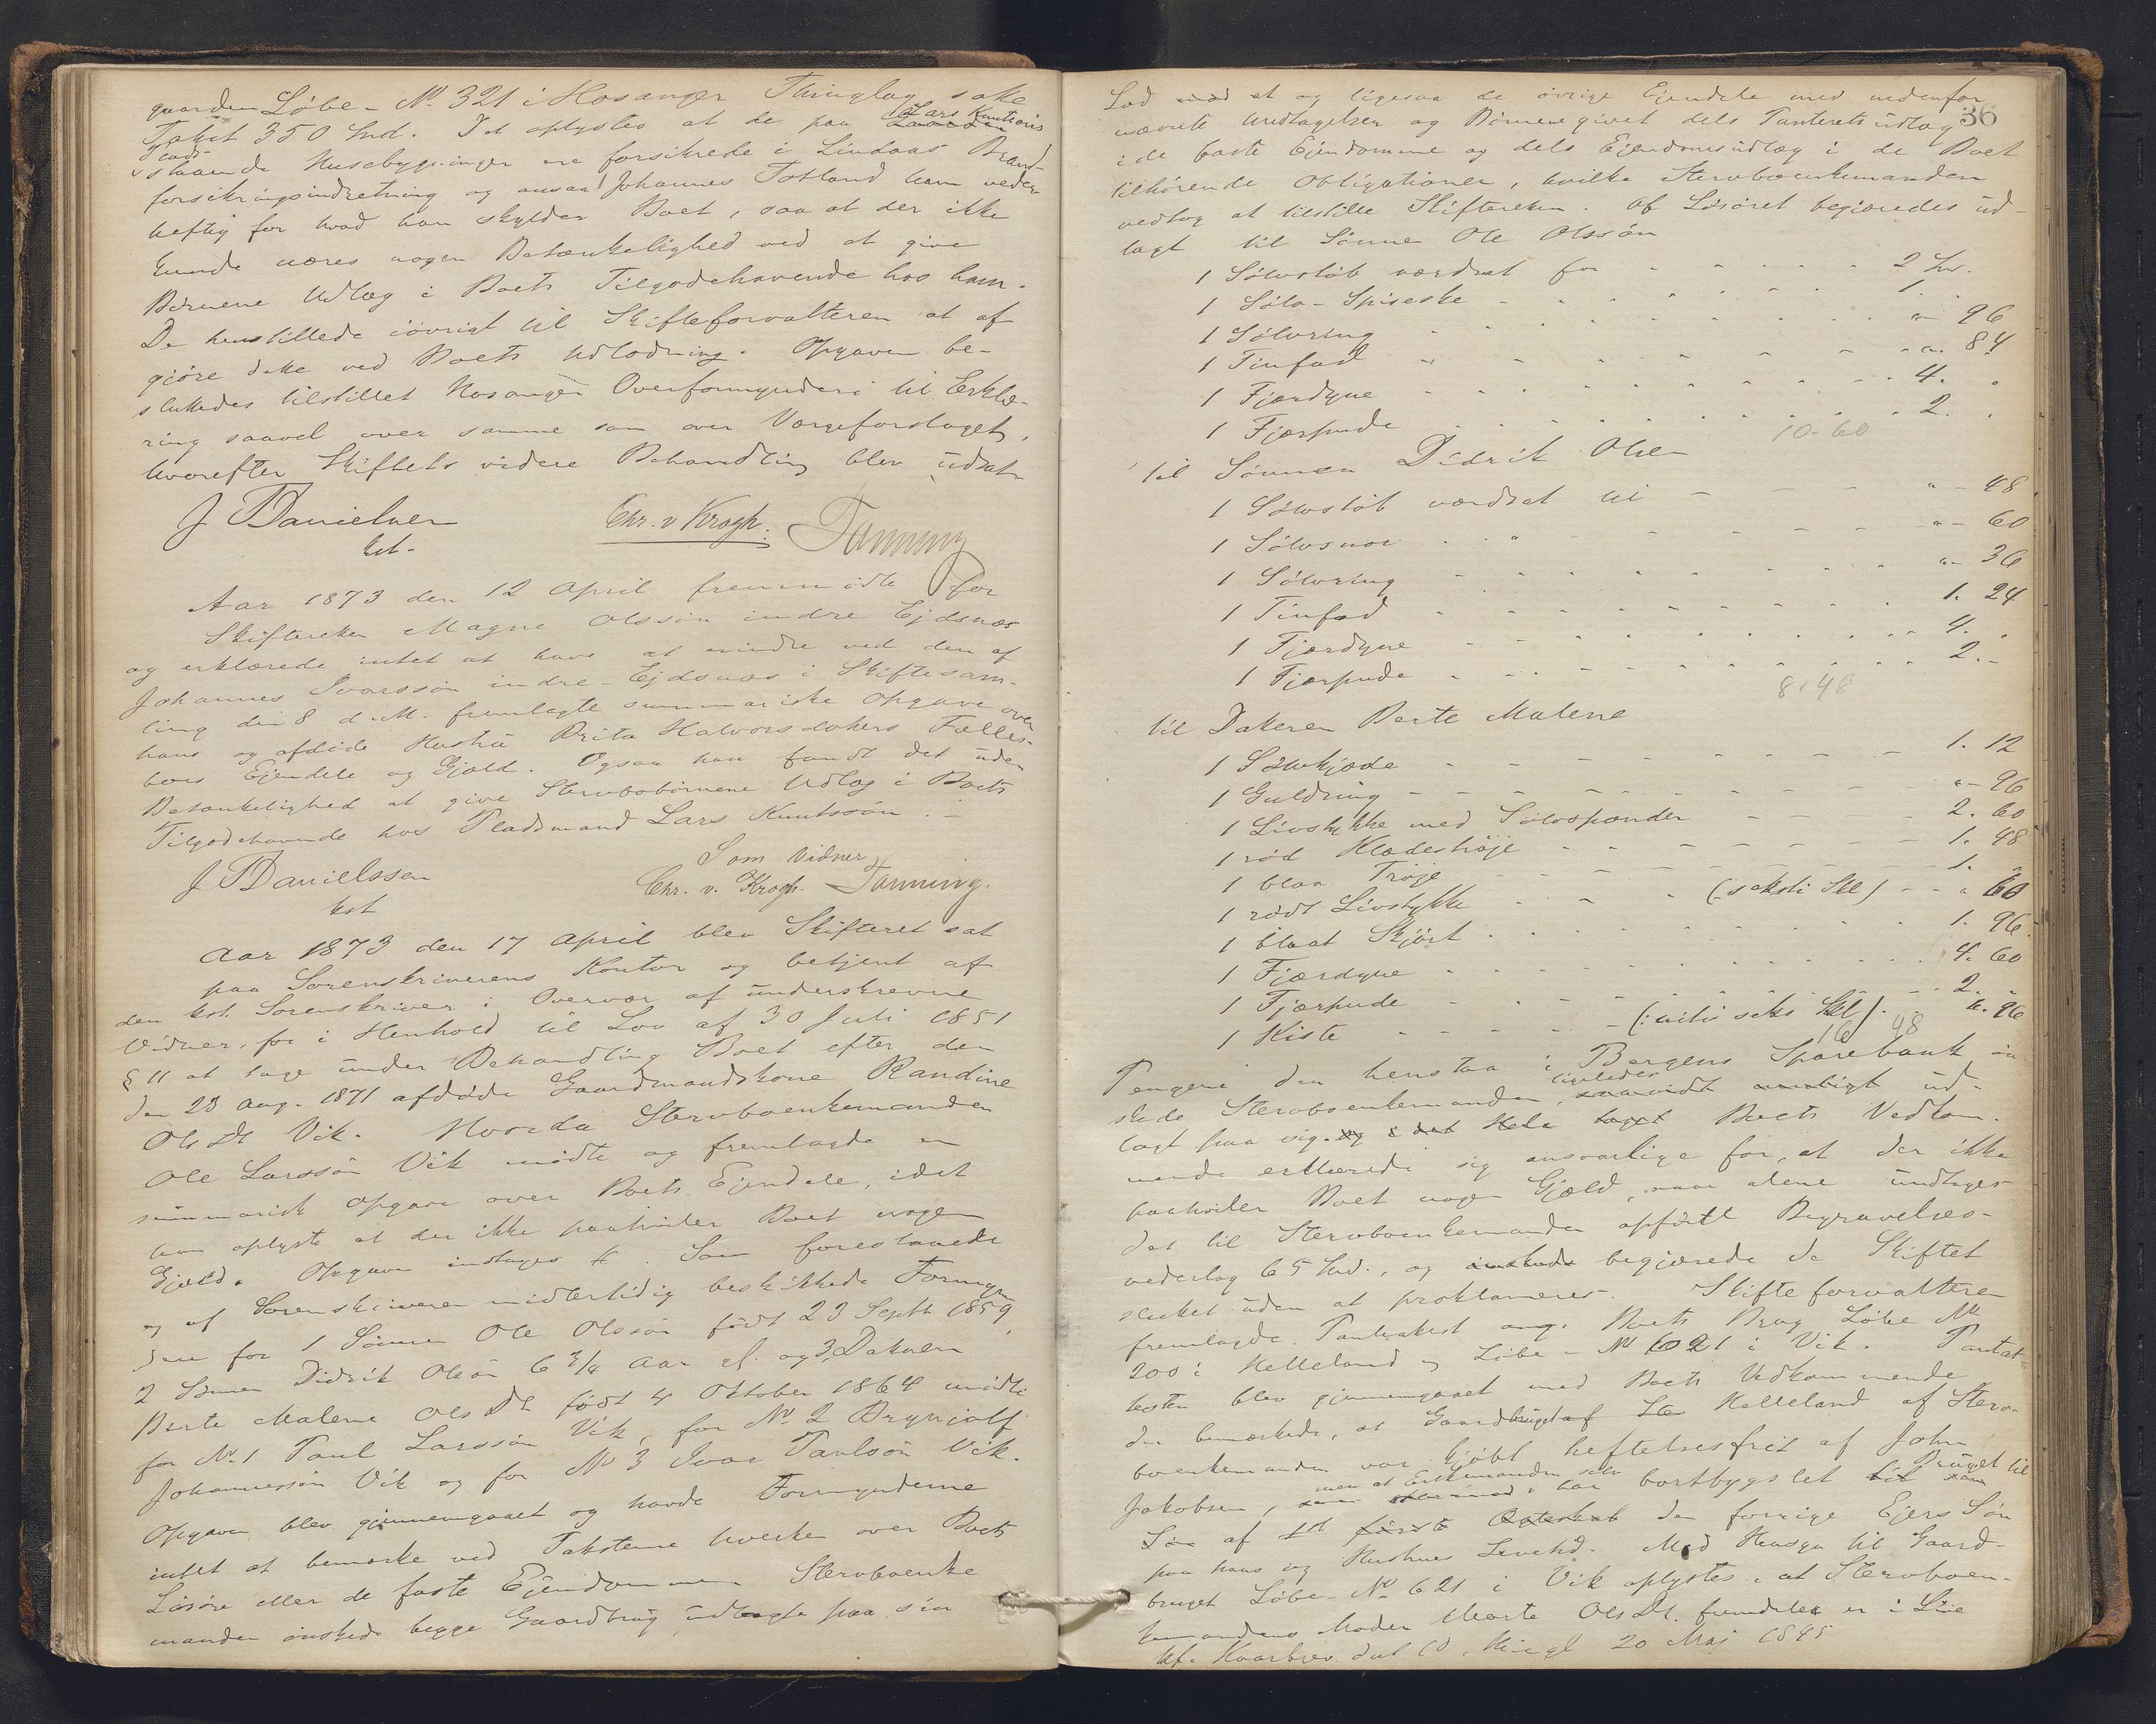 gaarden Løbe-No 321 i Hosanger Thinglag
Taxt 350 Spd. Det oplystes at de paa Lars Knutsøns
Plads
staaende Husebygninger ere forsikrede i Lindaas Brand-
forsikringsindretning og ansaa Johannes Totland ham veder-
heftig for hvad han skylder Boet, saa at der ikke
kunde være nogen Betænkelighed ved at give
Børnene Udlæg i Boets Tilgodehavende hos ham.
De henstillede iøvrigt til Skifteforvalteren at af
gjøre dette ved Boets Udlodning. Opgaven be-
sluttedes tilstillet Hosanger Overformynderi til Erklæ-
ring saavel over samme som over Værgeforslaget,
hvorefter Skiftets videre Behandling blev udsat
J Danielsen
kst.
Chr. v Krogh. Tanning
Aar 1873 den 12 April fremmødte for
Skifteretten Magne Olssøn indre Ejdsnæs
og erklærede intet at have at erindre ved den af
Johannes Ivarssøn indre-Ejdsnæs i Skiftesam-
ling den 8 d. M. fremlagte summariske Opgave over
hans og afdøde Hustru Brita Halvorsdatters Fælles-
boes Ejendele og Gjæld. Ogsaa han fandt det uden
Betænkelighed at give Stervbobørnene Udlæg i Boets
Tilgodehavende hos Pladsmand Lars Knutssøn.
J Danielssen
kst
Som Vidner
Chr. v. Krogh. Tanning.
Aar 1873 den 17 April blev Skifteret sat
paa Sorenskriverens Kontor og betjent af
den kst. Sorenskriver i Overvær af underskrevne
Vidner, for i Henhold til Lov af 30 Juli 1851
§ 11 at tage under Behandling Boet efter den
den 23 Aug. 1871 afdøde Gaardmandskone Randine
Ols Dt Vik. Hvorda Stervboenkemanden
Ole Larssøn Vik mødte og fremlagde en
summarisk Opgave over Boets Ejendele, idet
han oplyste at der ikke paahviler Boet nogen
Gjæld. Opgaven indtages #. Som foreslaaede
og af Sorenskriveren midlertidig beskikkede Formyn
dere for 1 Sønnen Ole Olssøn født 23 Septb 1859,
2 Sønnen Didrik Olsøn 6 3/4 Aar gl. og 3, Datteren
Berte Malene Ols Dt født 4 Oktober 1864 mødte
for No 1 Paul Larssøn Vik, for No 2 Brynjolf
Johannessøn Vik og for No 3 Ivar Paulsøn Vik.
Opgaven blev gjennemgaaet og havde Formynderne
intet at bemærke ved Taksterne hverken over Boets
Løsøre eller de faste Ejendomme. Stervboenke
manden ønskede begge Gaardbrug udlagte paa sin
36
Lod mod at og ligesaa de øvrige Ejendele med nedenfor
nævnte Undtagelser og Børnene givet dels Panterets udlæg
i de faste Ejendomme og dels Ejendomsudlæg i de Boet
tilhørende Obligationer, hvilke Stervboenkemanden
vedtog at tilstille Skifteretten. Af Løsøret begjæredes ud-
lagt til Sønnen Ole Olssøn
1 Sølvstøb værdsat for 2 Spd.
1 Sølv-Spiseske 1.
1 Sølvring " 96
1 Tinfad " 84
1 Fjærdyne 4.
1 Fjærpude 2.
10.60
til Sønnen Didrik Olsen
1 Sølvstøb værdsat til " - 48
1 Sølvsnor " - 60
1 Sølvring " - 36
1 Tinfad 1. 24
1 Fjærdyne 4.
1 Fjærpude 2.-
8.48
til Datteren Berte Malene
1 Sølvkjæde 1. 12
1 Guldring " - 96
1 Livstykke med Sølvspænder 2. 60
1 rød Klædestrøje 1. 48
1 blaa Trøje 1. "
1 rødt Livstykke (:seksti Skl) " 60
1 blaat Skjørt 1. 96.
1 Fjærdyne 4. 60
1 Fjærpude 2. "
1 Kiste (:niti seks Skl). ". 96
16 48
Pengene den henstaa i Bergens Sparebank øn
skede Stervboenkemanden, ligeledes saavidt muligt ud-
lagt paa sig. og i det Hele taget Boets Vedkom-
mende erklærede sig ansvarlige for, at der ikke
paahviler Boet nogen Gjæld, naar alene undtages
det til Stervboenkemanden opførte Begravelses-
vederlag 65 Spd., og ønskede begjærede de Skiftet
sluttet uden at proklameres. Skifteforvalteren
fremlagde Pantattest ang. Boets Brug Løbe No
200 i Kelleland og Løbe-No 621 i Vik. Pantat-
testen blev gjennemgaaet med Boets Vedkommende
der bemærkede, at Gaardbruget af Kelleland af Sterv-
boenkemanden var kjøbt heftelsesfrit af John
Jakobsen, men at Enkemanden selv har bortbygslet Bruget til
Søn af første den forrige Ejers Søn
paa hans og Hustrues Levetid. Med Hensyn til Gaard-
bruget Løbe-No 621 i Vik oplystes, at Stervboen-
kemandens Moder Marte Ols Dt. fremdeles er i Live
kfr. Kaarbrev dat 10, thingl 20 Maj 1845